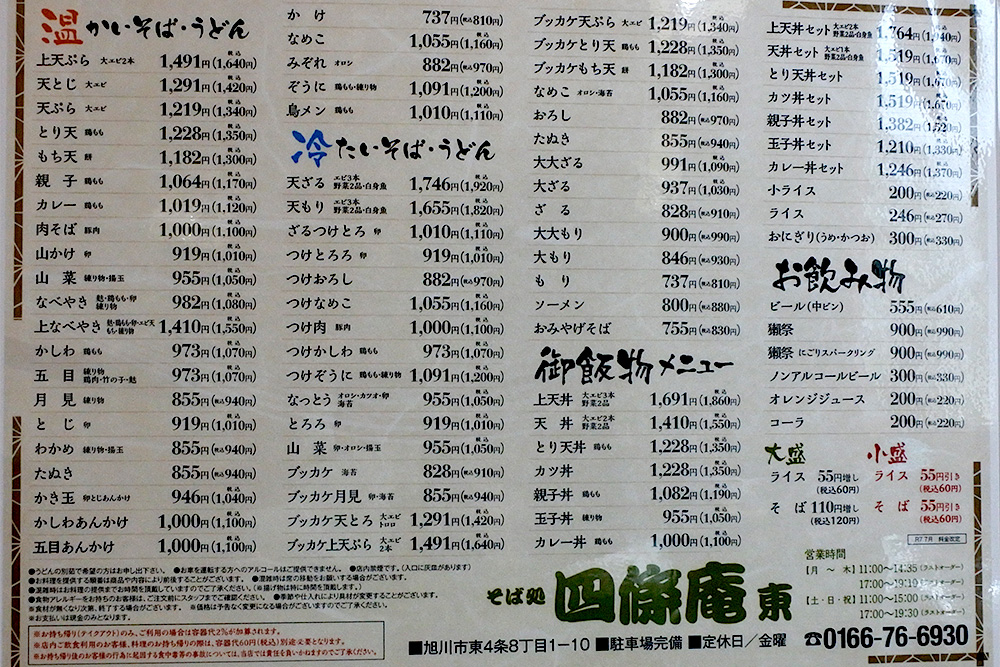 温かいそば・うどん
上天ぷら 大エビ2本 1,491円(税込1,640円)
天とじ 大エビ 1,291円(税込1,420円)
天ぷら 大エビ 1,219円(税込1,340円)
とり天 鶏もも 1,228円(税込1,350円)
もち天 餅 1,182円(税込1,300円)
親子 鶏もも 1,064円(税込1,170円)
カレー 鶏もも 1,019円(税込1,120円)
肉そば 豚肉 1,000円(税込1,100円)
山かけ 卵 919円(税込1,010円)
山菜 練り物・揚玉 955円(税込1,050円)
なべやき 麩・鶏もも・卵 練り物 982円(税込1,080円)
上なべやき 麩・鶏もも・卵・エビ天 もち・練り物 1,410円(税込1,550円)
かしわ 鶏もも 973円(税込1,070円)
五目 練り物 鶏肉・竹の子・麩 973円(税込1,070円)
月見 練り物 855円(税込940円)
とじ 卵 919円(税込1,010円)
わかめ 練り物・揚玉 855円(税込940円)
たぬき 855円(税込940円)
かき玉 卵とじあんかけ 946円(税込1,040円)
かしわあんかけ 1,000円(税込1,100円)
五目あんかけ 1,000円(税込1,100円)
かけ 737円(税込810円)
なめこ 1,055円(税込1,160円)
みぞれ オロシ 882円(税込970円)
ぞうに 鶏もも・練り物 1,091円(税込1,200円)
鳥メン 鶏もも 1,010円(税込1,110円)
冷たいそば・うどん
天ざる エビ3本 野菜2品・白身魚 1,746円(税込1,920円)
天もり エビ3本 野菜2品・白身魚 1,655円(税込1,820円)
ざるつけとろ 卵 1,010円(税込1,110円)
つけとろろ 卵 919円(税込1,010円)
つけおろし 882円(税込970円)
つけなめこ 1,055円(税込1,160円)
つけ肉 豚肉 1,000円(税込1,100円)
つけかしわ 鶏もも 973円(税込1,070円)
つけぞうに 鶏もも・練り物 1,091円(税込1,200円)
なっとう オロシ・カツオ・卵 海苔 955円(税込1,050円)
とろろ 卵 919円(税込1,010円)
山菜 卵・オロシ・揚玉 955円(税込1,050円)
ブッカケ 海苔 828円(税込910円)
ブッカケ月見 卵・海苔 855円(税込940円)
ブッカケ天とろ 大エビ トロロ 1,291円(税込1,420円)
ブッカケ上天ぷら 大エビ 2本 1,491円(税込1,640円)
ブッカケ天ぷら 大エビ 1,219円(税込1,340円)
ブッカケとり天 鶏もも 1,228円(税込1,350円)
ブッカケもち天 餅 1,182円(税込1,300円)
なめこ オロシ・海苔 1,055円(税込1,160円)
おろし 882円(税込970円)
たぬき 855円(税込940円)
大大ざる 991円(税込1,090円)
大ざる 937円(税込1,030円)
ざる 828円(税込910円)
大大もり 900円(税込990円)
大もり 846円(税込930円)
もり 737円(税込810円)
ソーメン 800円(税込880円)
おみやげそば 755円(税込830円)
御飯物メニュー
上天丼 大エビ3本 野菜2品 1,691円(税込1,860円)
天丼 大エビ2本 野菜2品 1,410円(税込1,550円)
とり天丼 鶏もも 1,228円(税込1,350円)
カツ丼 1,228円(税込1,350円)
親子丼 鶏もも 1,082円(税込1,190円)
玉子丼 練り物 955円(税込1,050円)
カレー丼 鶏もも 1,000円(税込1,100円)
上天丼セット 大エビ2本 野菜2品・白身魚 1,764円(税込1,940円)
天丼セット 大エビ1本 野菜2品・白身魚 1,519円(税込1,670円)
とり天丼セット 1,519円(税込1,670円)
カツ丼セット 1,519円(税込1,670円)
親子丼セット 1,382円(税込1,520円)
玉子丼セット 1,210円(税込1,330円)
カレー丼セット 1,246円(税込1,370円)
小ライス 200円(税込220円)
ライス 246円(税込270円)
おにぎり(うめ・かつお) 300円(税込330円)
お飲み物
ビール(中ビン) 555円(税込610円)
獺祭 900円(税込990円)
獺祭 にごりスパークリング 900円(税込990円)
ノンアルコールビール 300円(税込330円)
オレンジジュース 200円(税込220円)
コーラ 200円(税込220円)
大盛
ライス 55円増し (税込60円)
そば 110円増し (税込120円)
小盛
ライス 55円引き (税込60円)
そば 55円引き (税込60円)
R7.7月 料金改定
●うどんの別茹で希望の方はお申し出下さい。 ●お車を運転する方へのアルコールはご提供できません。 ●店内禁煙です。(入口に灰皿があります)
●お料理を提供する順番は商品や内容により前後することがございます。 ●混雑時は席の移動をお願いする場合がございます。
●混雑時はお料理の提供までお時間を頂戴していますのでご了承ください。(※揚げ物は特に時間を頂戴します。)
●食物アレルギーをお持ちのお客様は、ご注文前にスタッフまでご確認ください。 ●季節や仕入れにより具材が変更することがございます。
※食材が無くなり次第、終了する場合がございます。 ※価格は予告なく変更になる場合がございますのでご了承ください。
※お支払いは現金のみとなります。
※お持ち帰り(テイクアウト)のみ、ご利用の場合は容器代2%が加算されます。
※店内ご飲食利用のお客様、料理のお持ち帰りの際は、容器代60円(税込)別途必要となります。
※お持ち帰り後のお客様の行為に起因する食中毒等の事故については、当店では責任を負いかねますのでご了承ください。
そば処 四條庵 東
■旭川市東4条8丁目1-10 ■駐車場完備 ■定休日／金曜
営業時間
[月～木] 11:00～14:35(ラストオーダー)
17:00～19:10(ラストオーダー)
[土・日・祝] 11:00～15:00(ラストオーダー)
17:00～19:30(ラストオーダー)
☎0166-76-6930